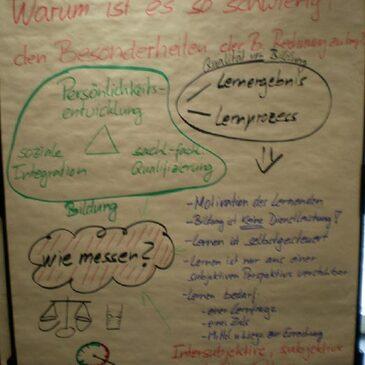 Warum ist es so schwierig,
den Besonderheiten der B. Rechnung zu
Qualität von Bildung
Persönlichkeits-
entwicklung
soziale
Integration
sachl.-fachl.
Qualifizierung
Bildung
- Lernergebnis
- Lernprozess
wie messen?
- Motivation des Lernenden
- Bildung ist Keine Dienstleistung!
- Lernen ist selbstgesteuert
- Lernen ist nur aus einer
subjektiven Perspektive verstehbar
- Lernen bedarf:
- einer Lernfrage
- eines Ziels
- Mittel u. Wege zur Erreichung
Intersubjektive, subjektive